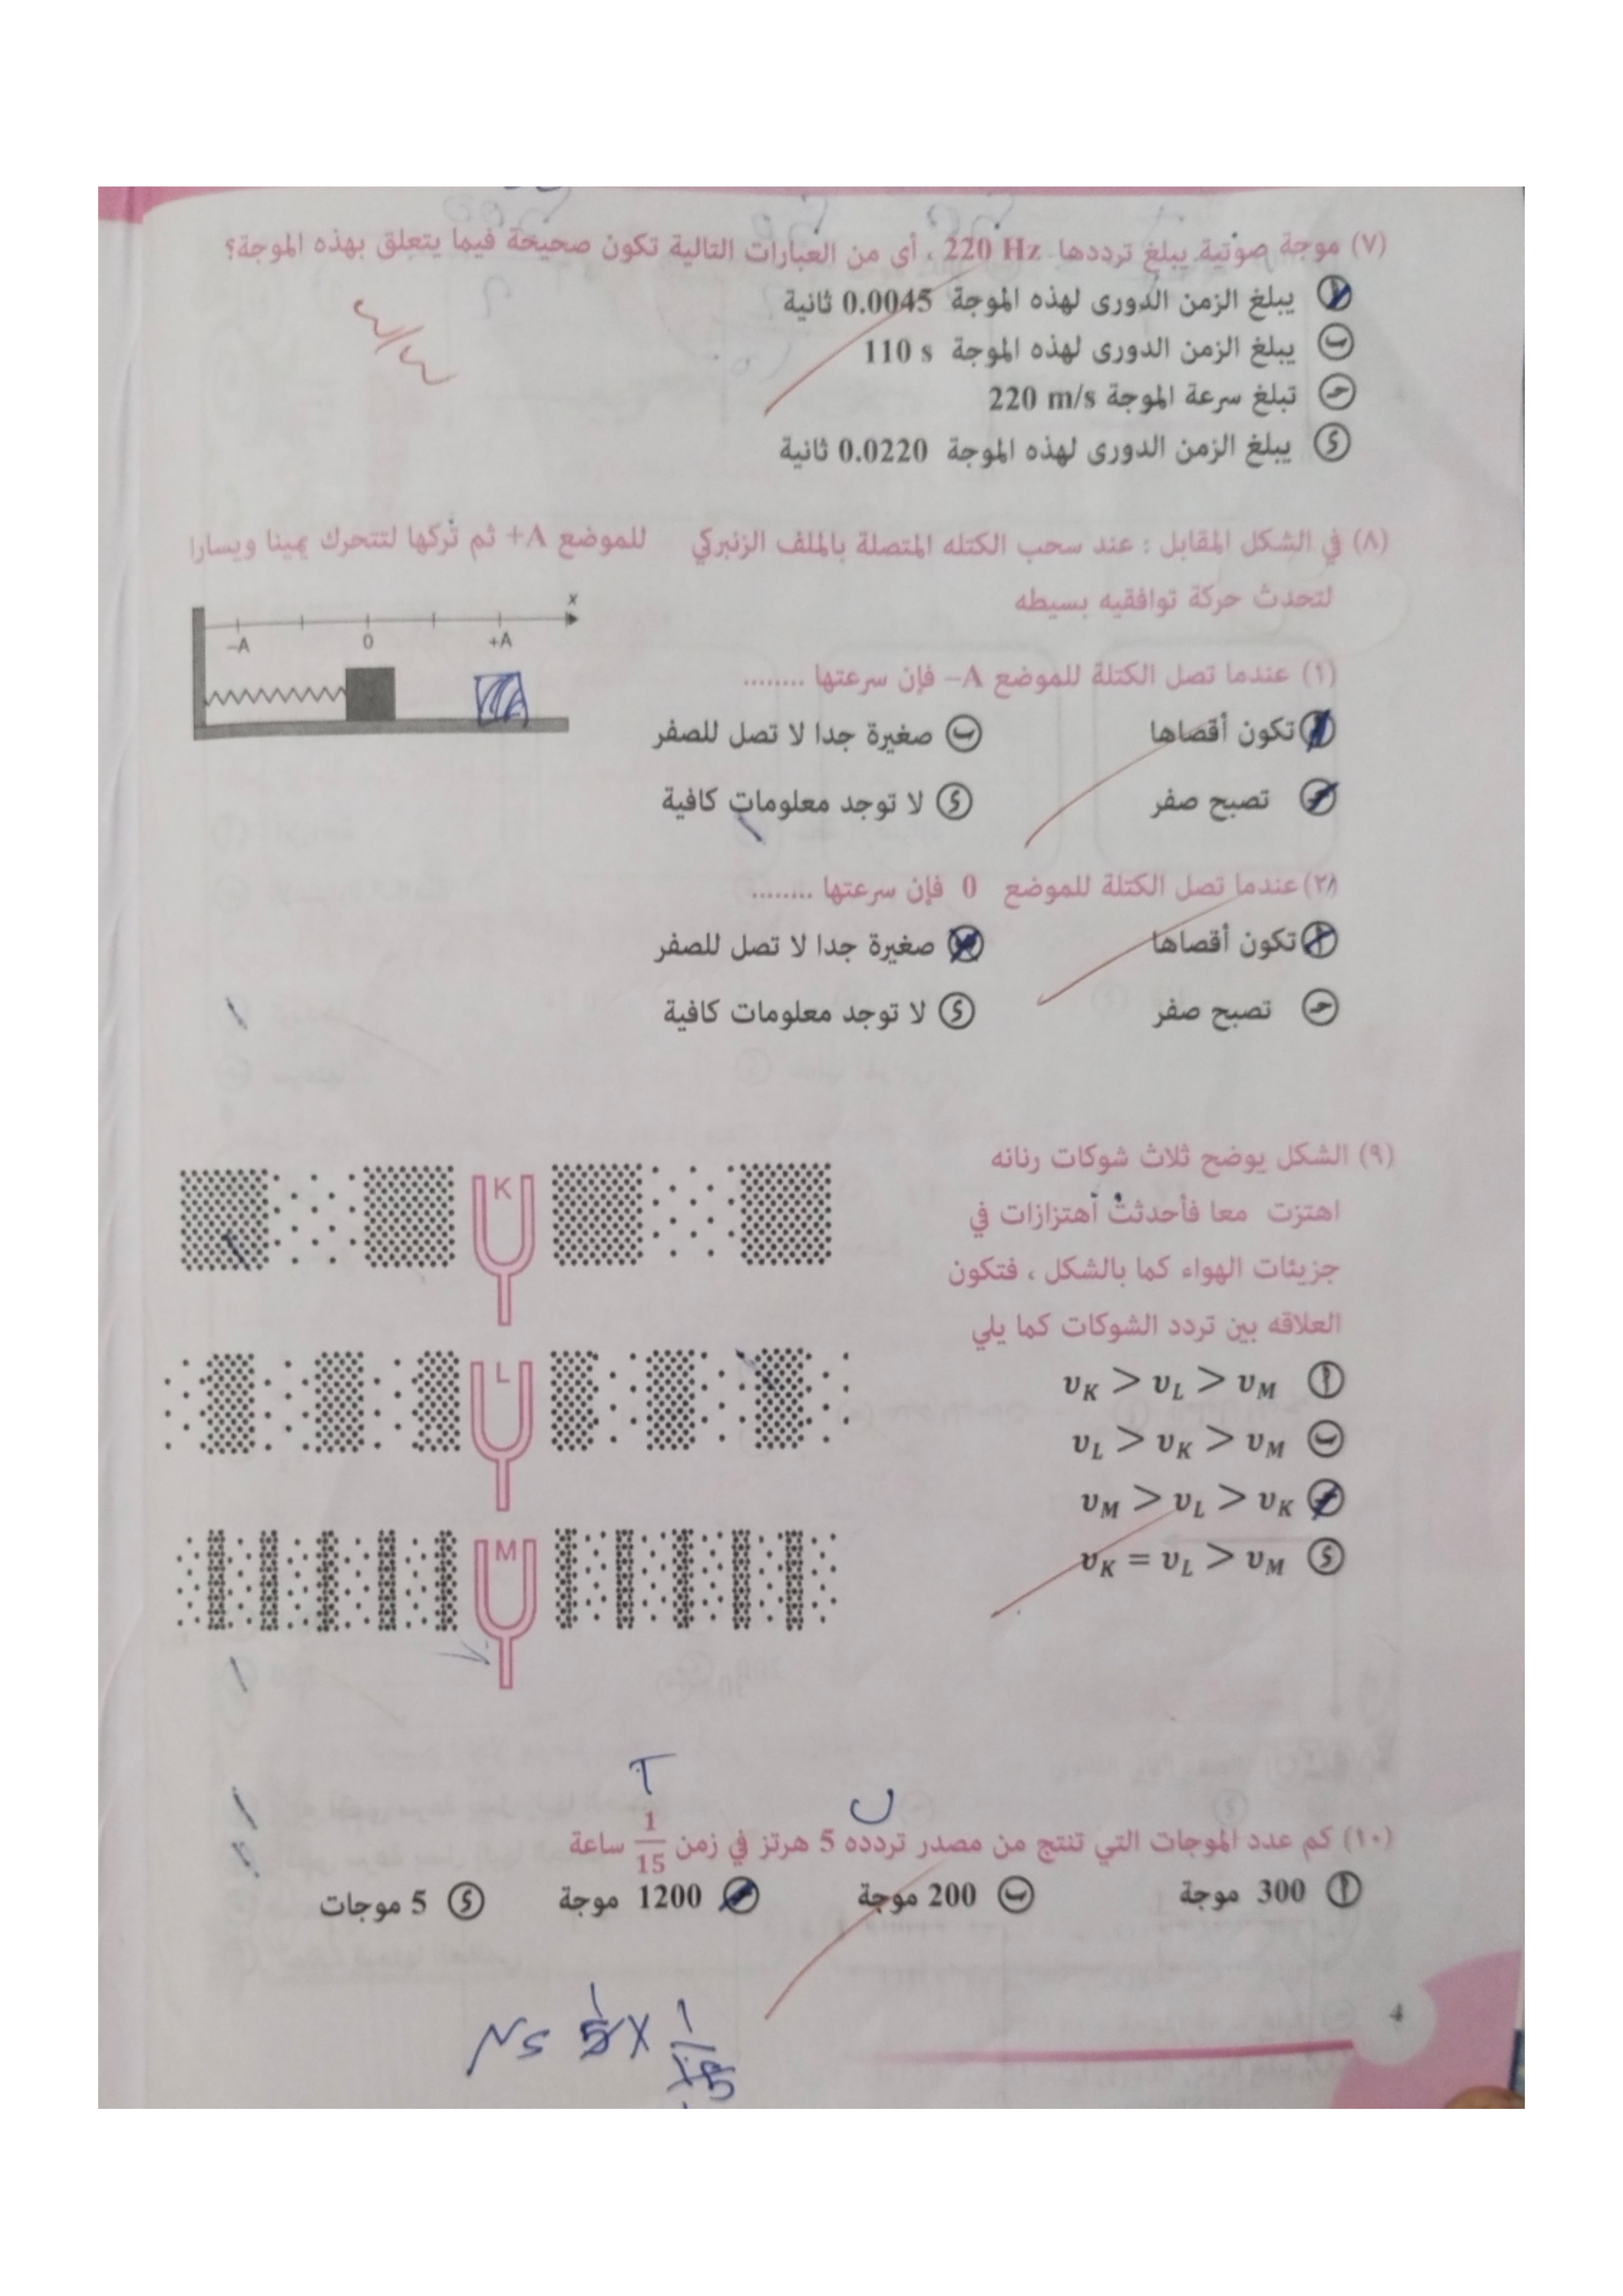 (٧) موجة صوتية يبلغ ترددها 220 Hz ، أى من العبارات التالية تكون صحيحة فيما يتعلق بهذه الموجة؟
أ يبلغ الزمن الدورى لهذه الموجة 0.0045 ثانية
ب يبلغ الزمن الدورى لهذه الموجة 110 s
جـ تبلغ سرعة الموجة 220 m/s
د يبلغ الزمن الدورى لهذه الموجة 0.0220 ثانية
(٨) في الشكل المقابل : عند سحب الكتله المتصلة بالملف الزنبركي للموضع +A ثم تركها لتتحرك يمينا ويسارا
لتحدث حركة توافقيه بسيطه
x
–A 0 +A
(١) عندما تصل الكتلة للموضع –A فإن سرعتها ........
أ تكون أقصاها ب صغيرة جدا لا تصل للصفر
جـ تصبح صفر د لا توجد معلومات كافية
(٢) عندما تصل الكتلة للموضع 0 فإن سرعتها ........
أ تكون أقصاها ب صغيرة جدا لا تصل للصفر
جـ تصبح صفر د لا توجد معلومات كافية
(٩) الشكل يوضح ثلاث شوكات رنانه
اهتزت معا فأحدثت أهتزازات في
جزيئات الهواء كما بالشكل ، فتكون
العلاقه بين تردد الشوكات كما يلي
K
L
M
أ υK > υL > υM
ب υL > υK > υM
جـ υM > υL > υK
د υK = υL > υM
T
(١٠) كم عدد الموجات التي تنتج من مصدر تردده 5 هرتز في زمن 1/15 ساعة
أ 300 موجة ب 200 موجة جـ 1200 موجة د 5 موجات
4